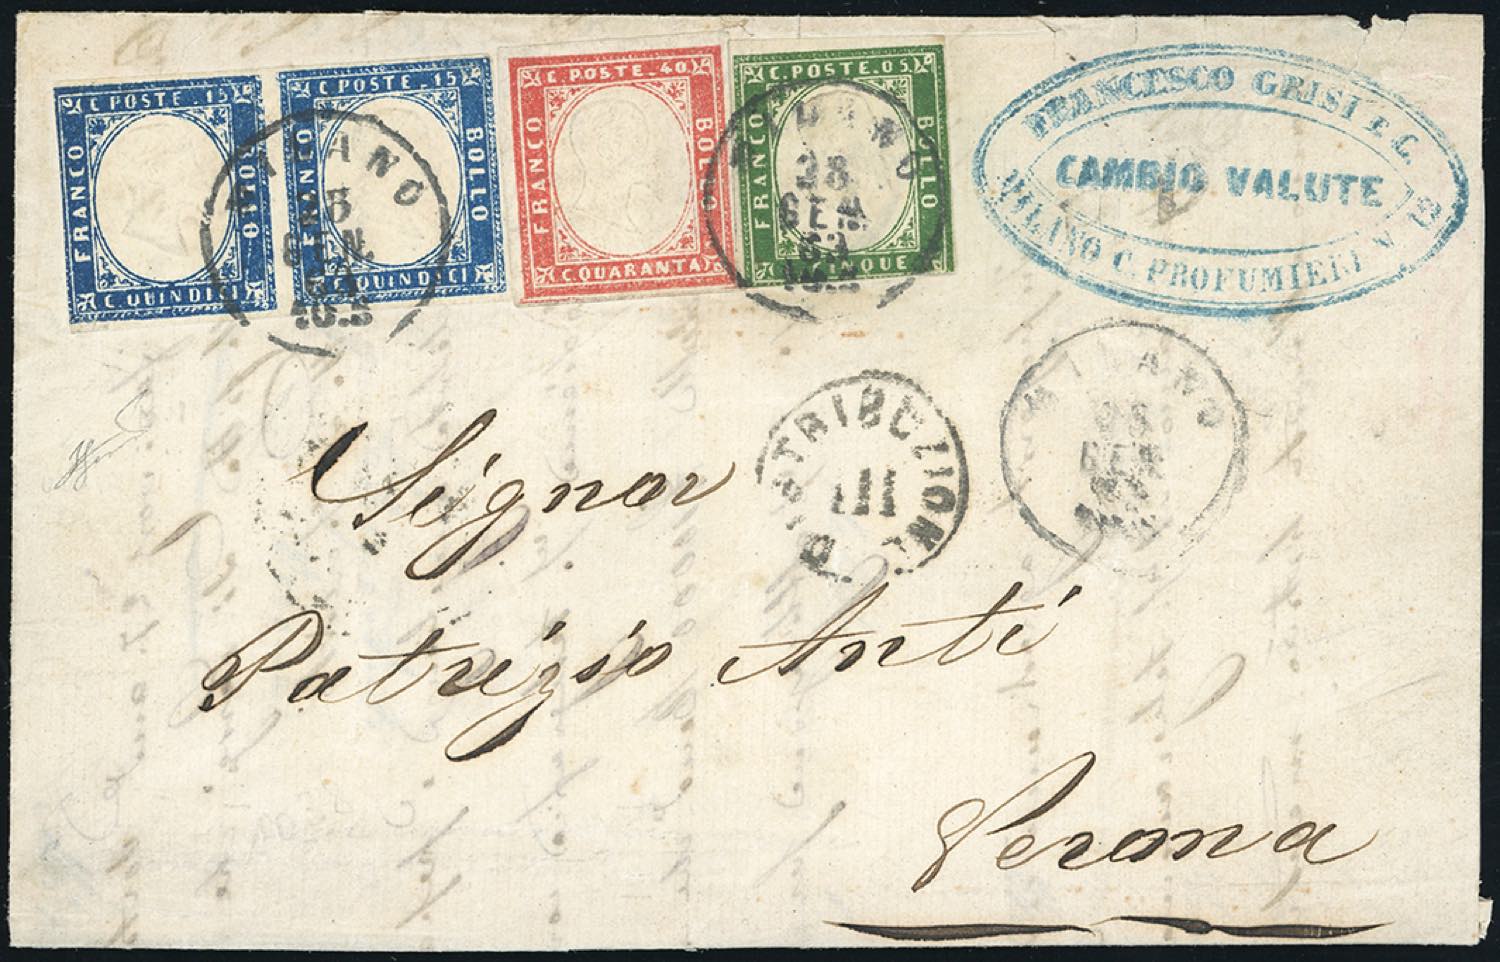 C. POSTE . 15
FRANCO
BOLLO
C. QUINDICI
C. POSTE . 15
FRANCO
BOLLO
C. QUINDICI
C. POSTE . 40.
FRANCO
BOLLO
C. QUARANTA
C. POSTE . 05.
FRANCO
BOLLO
MILANO
GEN
MILANO
28
GEN.
63
FRANCESCO GRISI E C.
CAMBIO VALUTE
MILANO C. PROFUMIERI N.
DISTRIBUZIONE
III
MILANO
GEN
Signor
Patrizio Anti
Verona